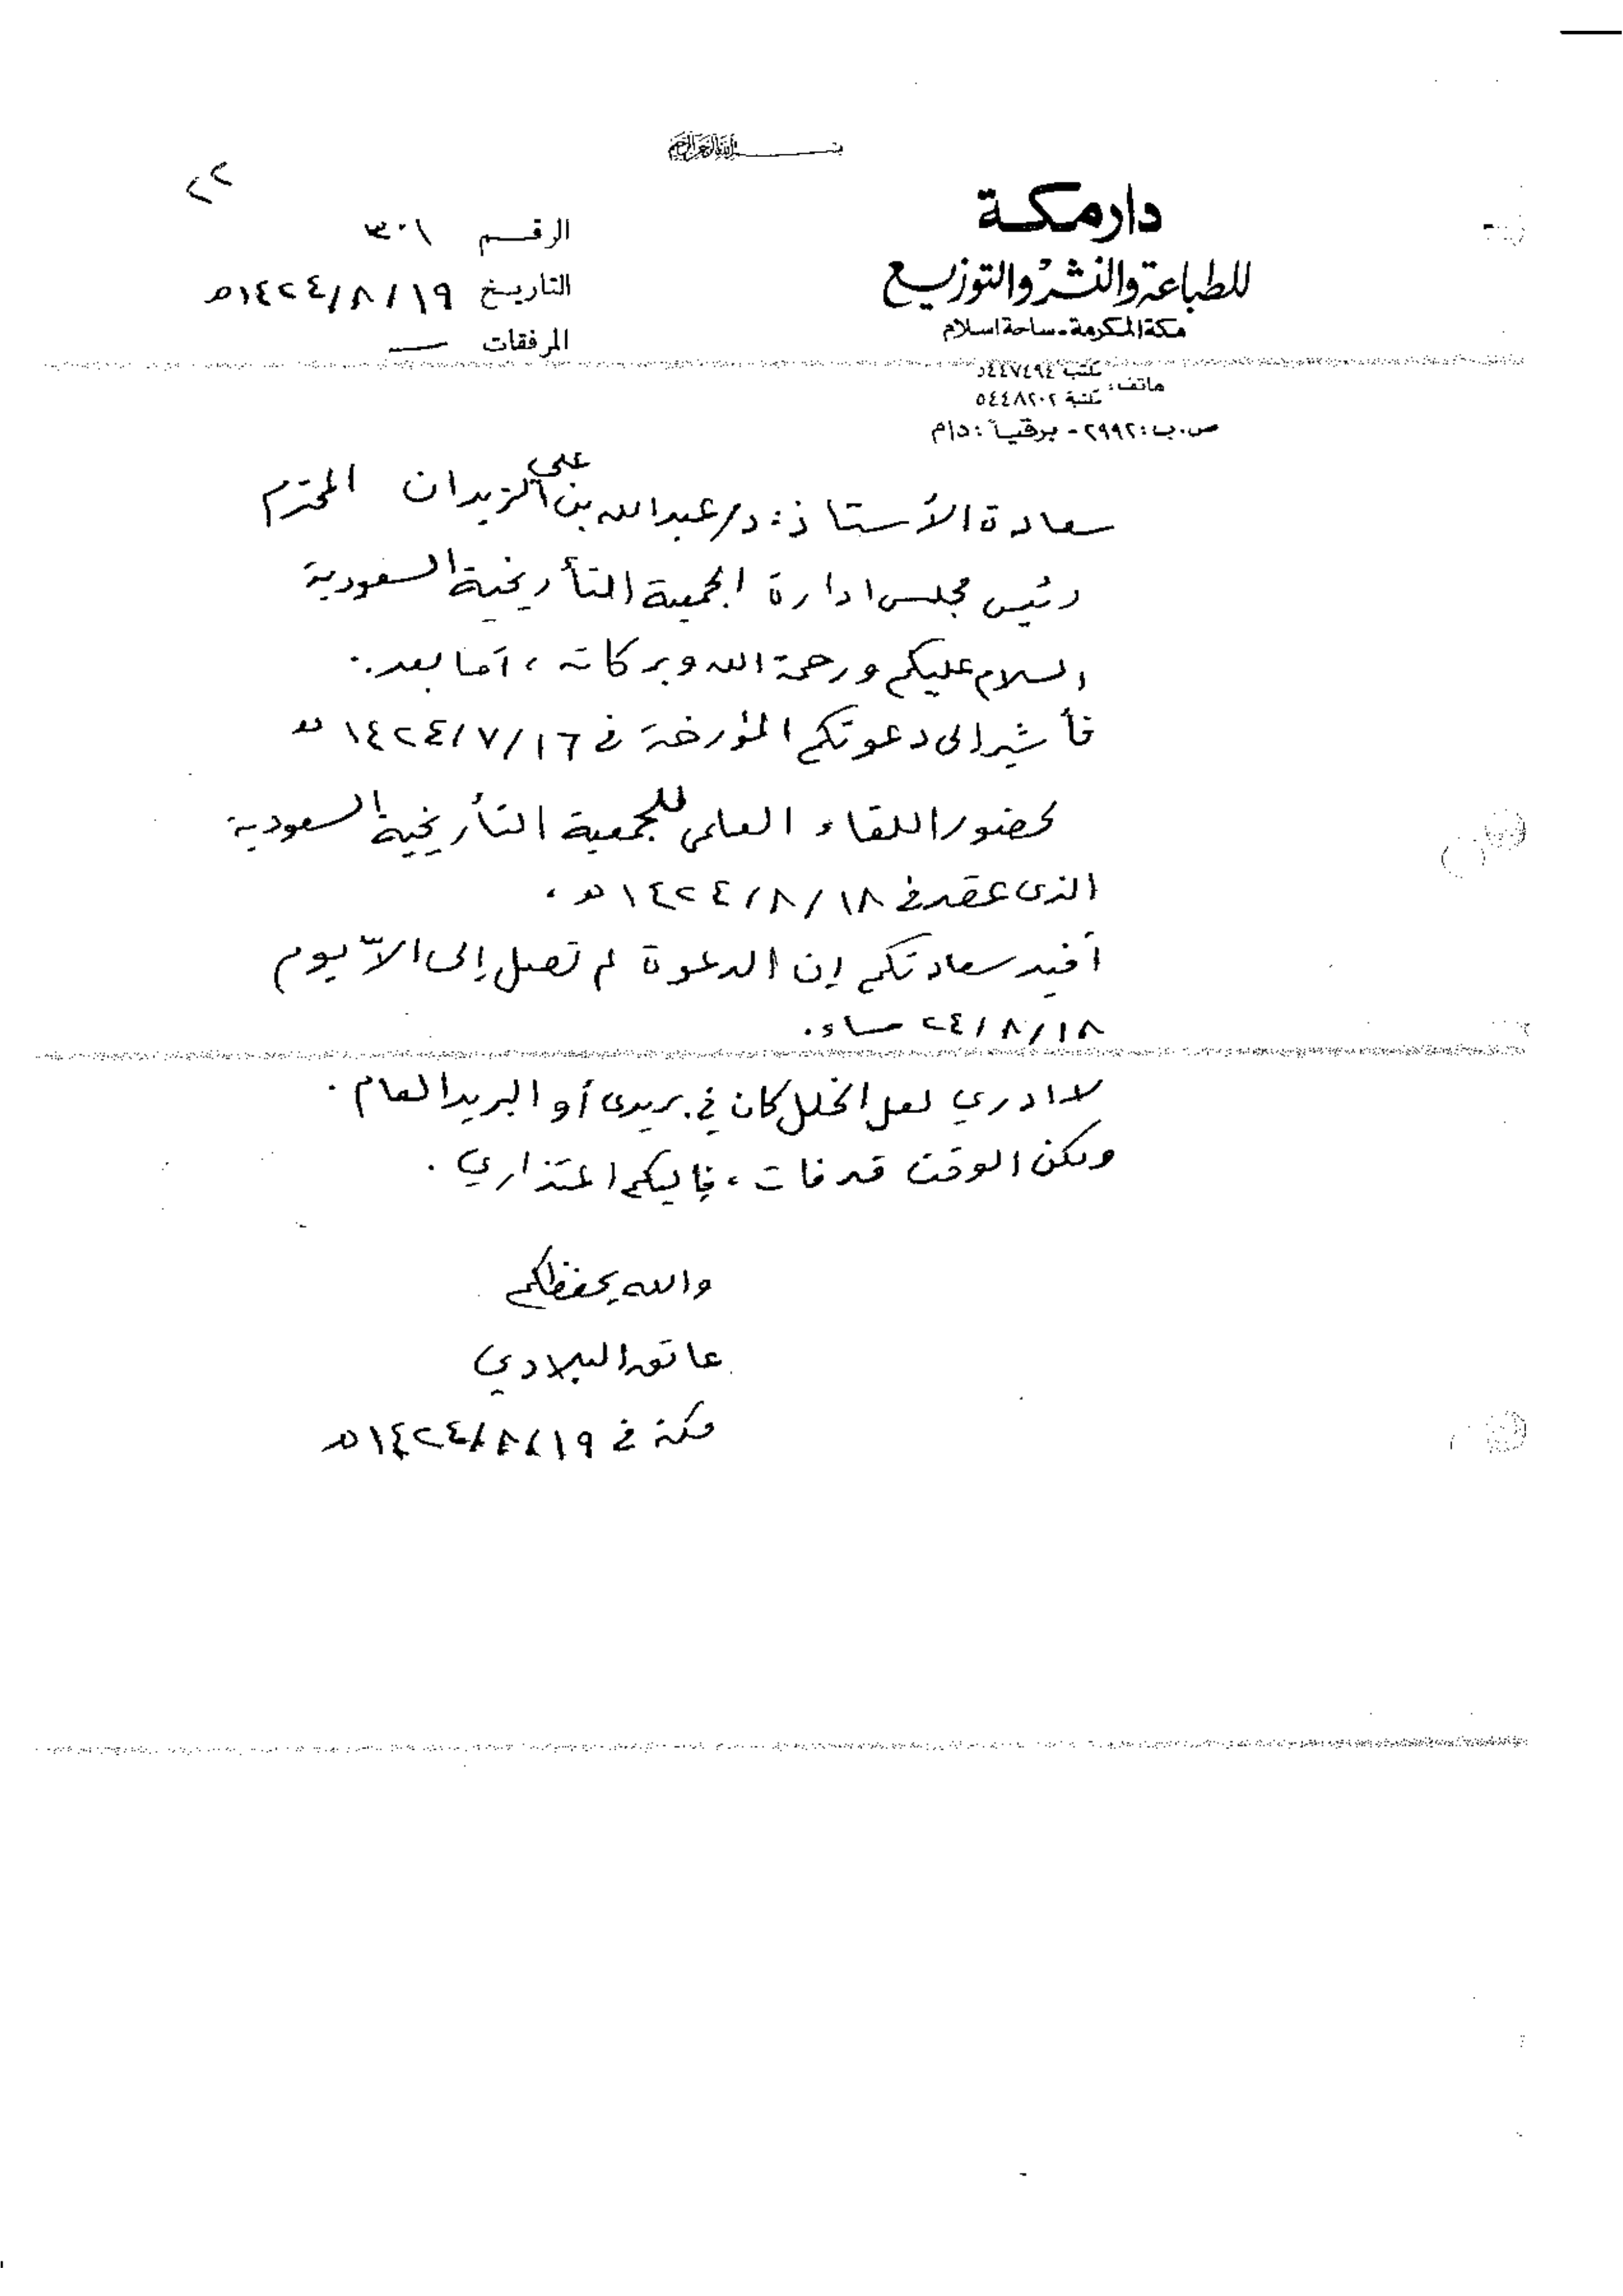 بسم الله الرحمن الرحيم
٢٢
دار مكة
للطباعة والنشر والتوزيع
مكة المكرمة - ساحة اسلام
هاتف: مكتب ٥٤٤٧٤٩٤
مكتبة ٥٤٤٨٢٠٢
ص.ب: ٢٩٩٢ - برقياً: دام
الرقم ٣٠١
التاريخ ١٩ / ٨ / ١٤٢٤هـ
المرفقات —
سعادة الأستاذ: د/ عبدالله بن علي الزيدان المحترم
رئيس مجلس ادارة الجمعية التأريخية السعودية
السلام عليكم ورحمة الله وبركاته ، أما بعد..
فأشير الى دعوتكم المؤرخة في ١٦ / ٧ / ١٤٢٤ هـ
لحضور اللقاء العلمي للجمعية التأريخية السعودية
الذى عقد في ١٨ / ٨ / ١٤٢٤ هـ ،
أفيد سعادتكم إن الدعوة لم تصل إلى الاّ يوم
١٨ / ٨ / ٢٤ مساء.
لا ادري لعل الخلل كان في بريدى أو البريد العام .
ولكن الوقت قد فات ، فإليكم اعتذاري .
والله يحفظكم
عاتق البلادي
مكة في ١٩ / ٨ / ١٤٢٤ هـ